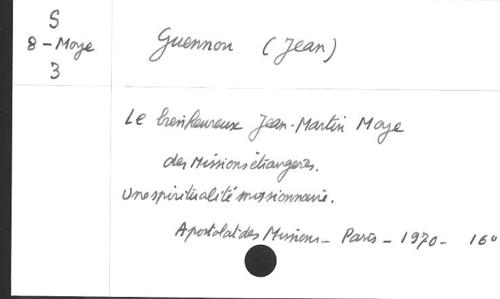 S
8 - Moye
3
Guennou (Jean)
Le bienheureux Jean-Martin Moye
des Missions étrangères.
Une spiritualité missionnaire.
Apostolat des Missions - Paris - 1970 - 16°